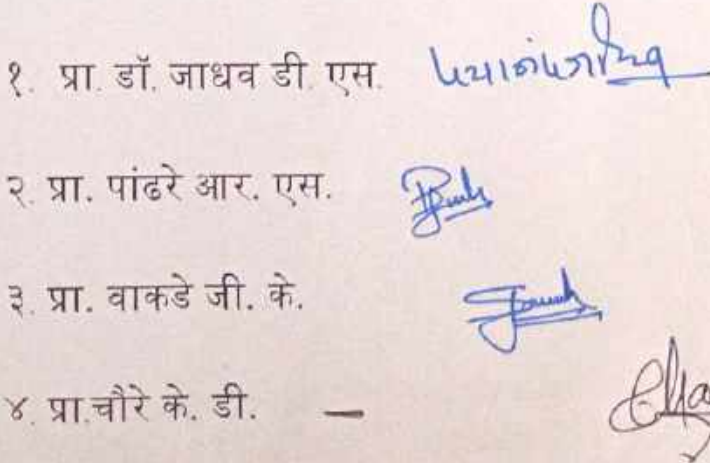 १. प्रा. डॉ. जाधव डी. एस.
२. प्रा. पांढरे आर. एस.
३. प्रा. वाकडे जी. के.
४. प्रा.चौरे के. डी. —